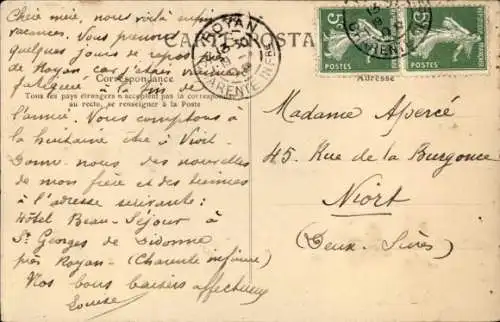 Chère mère, nous voilà enfin
vacances. Vous prenons
quelques jours de repos
de Royan car j'étais vraiment
fatiguée à la fin de
l'année. Nous comptons à
la huitaine être à Niort
Donne-nous des nouvelles
de mon frère et des tiennes
à l'adresse suivante:
Hôtel Beau-Séjour à
St Georges de Didonne
près Royan - (Charente infre)
Nos bons baisers affectueux
Louise
CARTE POSTALE
Correspondance
Adresse
Tous les pays étrangers n'acceptent pas la correspondance
au recto, se renseigner à la Poste
ROYAN
CHARENTE INFRE
Madame Apercé
45, Rue de la Burgonce
Niort
(Deux-Sèvres)
5
5